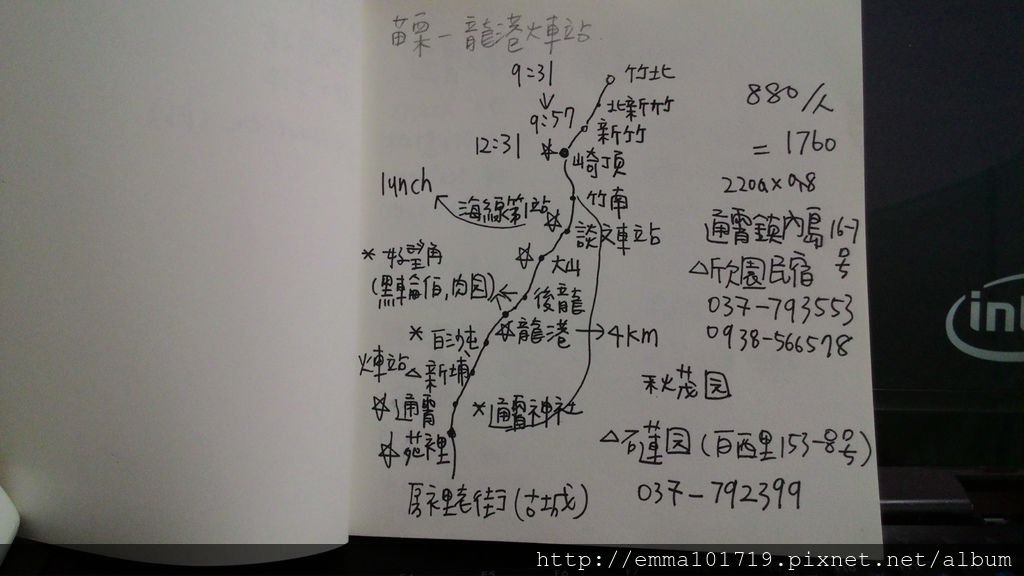 苗栗-龍港火車站
9:31
↓
9:57
12:31
竹北
北新竹
新竹
崎頂
竹南
lunch
海線第1站
談文車站
大山
*好望角
(黑輪伯,肉圓)
後龍
龍港→4km
*白沙屯
火車站△新埔
通霄
*通霄神社
苑裡
房裡老街(古城)
880/人
=1760
2200x0.8
通霄鎮內島16-7號
△欣園民宿
037-793553
0938-566578
秋茂园
△石蓮园(百西里153-8號)
037-792399
intel
http://emma101719.pixnet.net/album